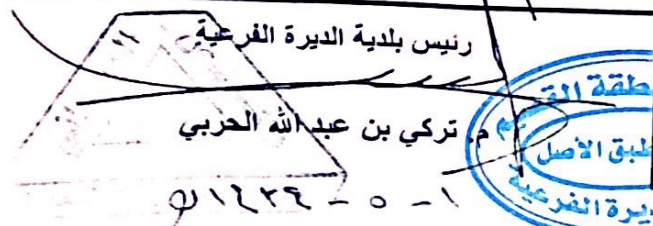 رئيس بلدية الديرة الفرعية
م. تركي بن عبد الله الحربي
١ - ٥ - ١٤٣٤ ه
طبق الأصل